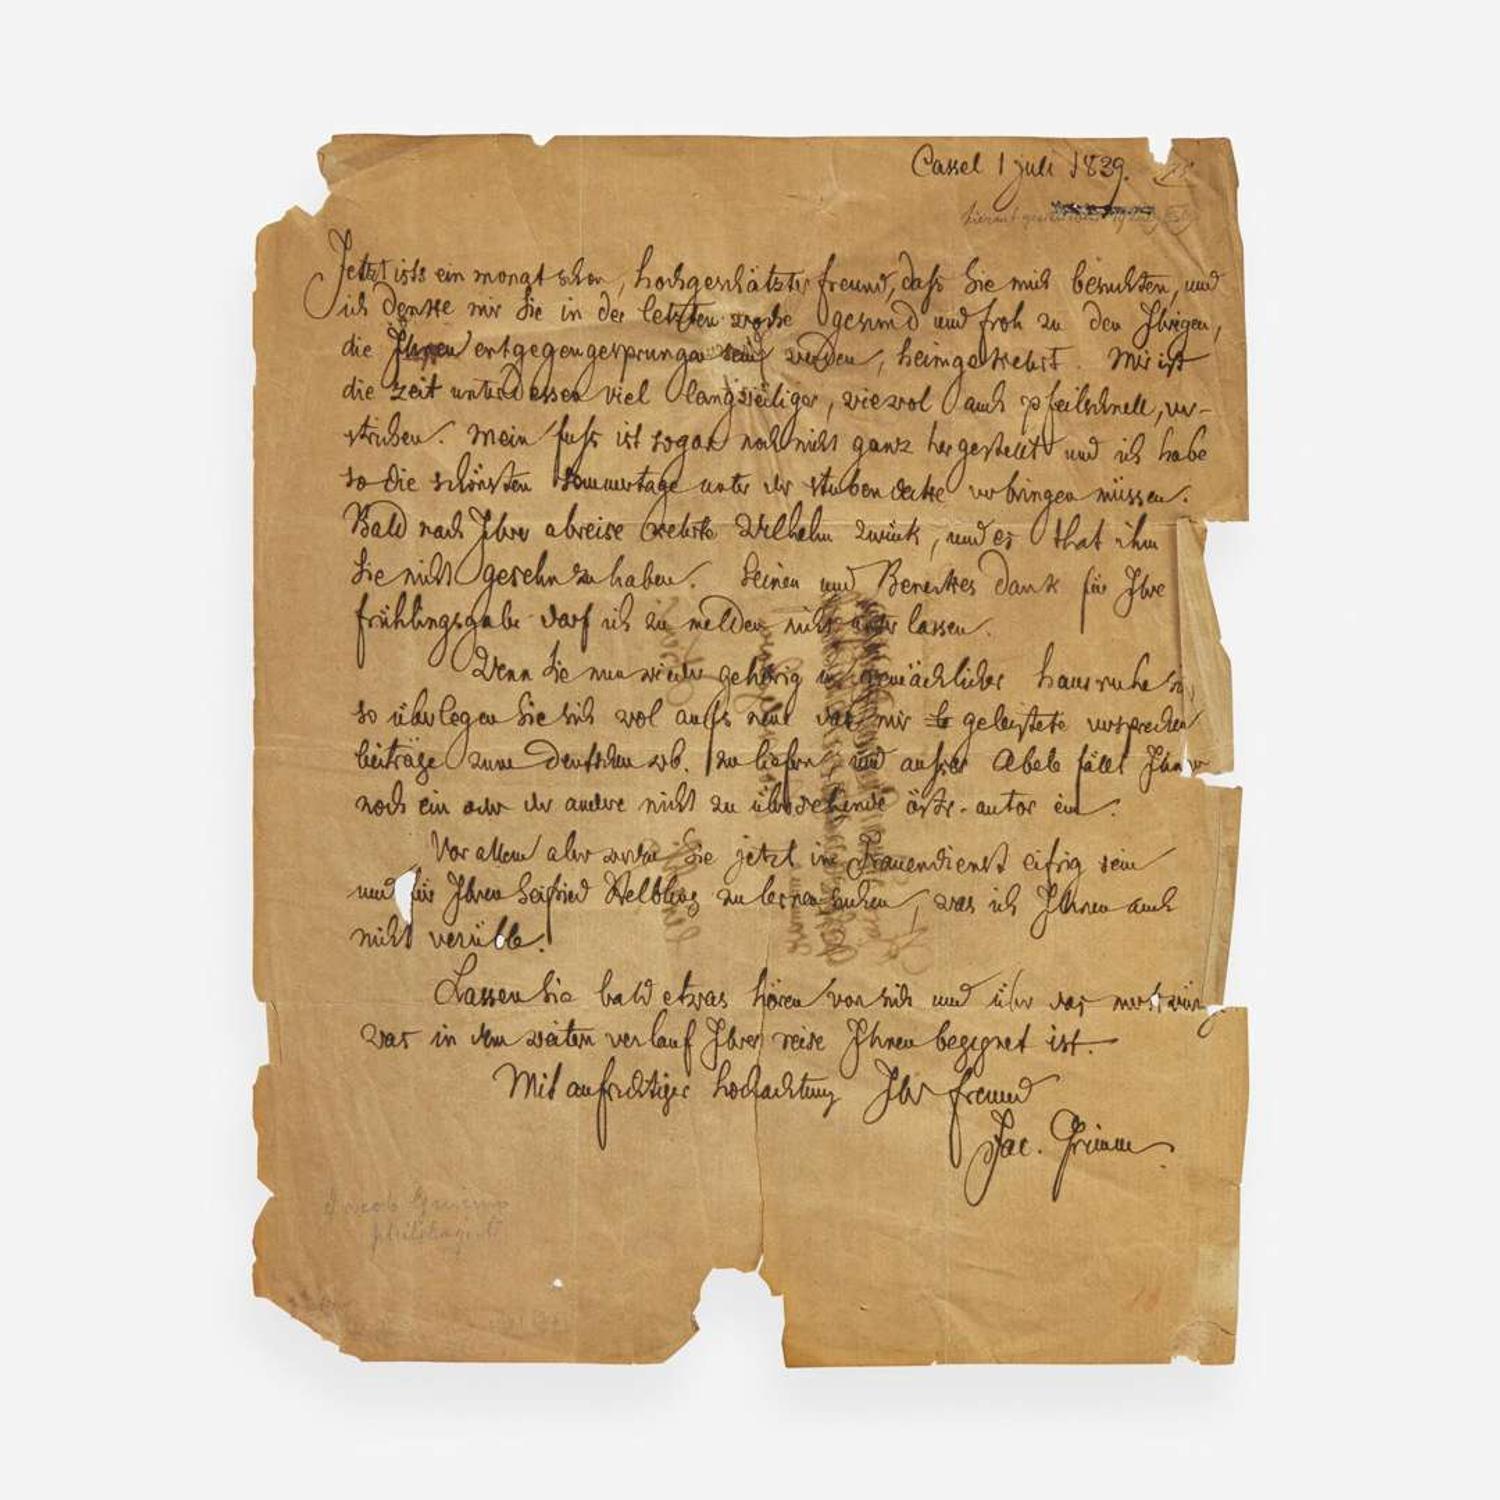 Cassel 1 juli 1839.
hierauf
Jetzt ists ein monat schon, hochgeschätzter freund, dafs Sie mich besuchten, und
ich denke mir Sie in der letzten woche gesund und froh zu den Ihrigen,
die Ihnen entgegengesprungen sein werden, heimgekehrt. Mir ist
die zeit unterdessen viel langweiliger, wiewol auch pfeilschnell, ver-
strichen. Mein fufs ist sogar noch nicht ganz hergestellt und ich habe
so die schönsten sommertage unter der stubendecke verbringen müssen.
Bald nach Ihrer abreise kehrte Wilhelm zurück, und es that ihm
Sie nicht gesehn zu haben. Seinen und Beneckes dank für Ihre
frühlingsgabe darf ich zu melden nicht unter lassen.
Wenn Sie nun wieder gehörig in gemächlicher hausruhe
so überlegen Sie sich wol aufs neue das mir geleistete versprechen
beiträge zum deutschen wb. zu liefern, und aufser Abele fällt Ihnen
noch ein oder der andere nicht zu übersehende östr. autor ein.
Vor allem aber werden Sie jetzt im Frauendienst eifrig sein
und für Ihren Seifried Helbling zu lernen suchen, was ich Ihnen auch
nicht verüble.
Lassen Sie bald etwas hören von sich und über das
was in dem weitern verlauf Ihrer reise Ihnen begegnet ist.
Mit aufrichtiger hochachtung Ihr freund
Jac. Grimm.
Jacob Grimm